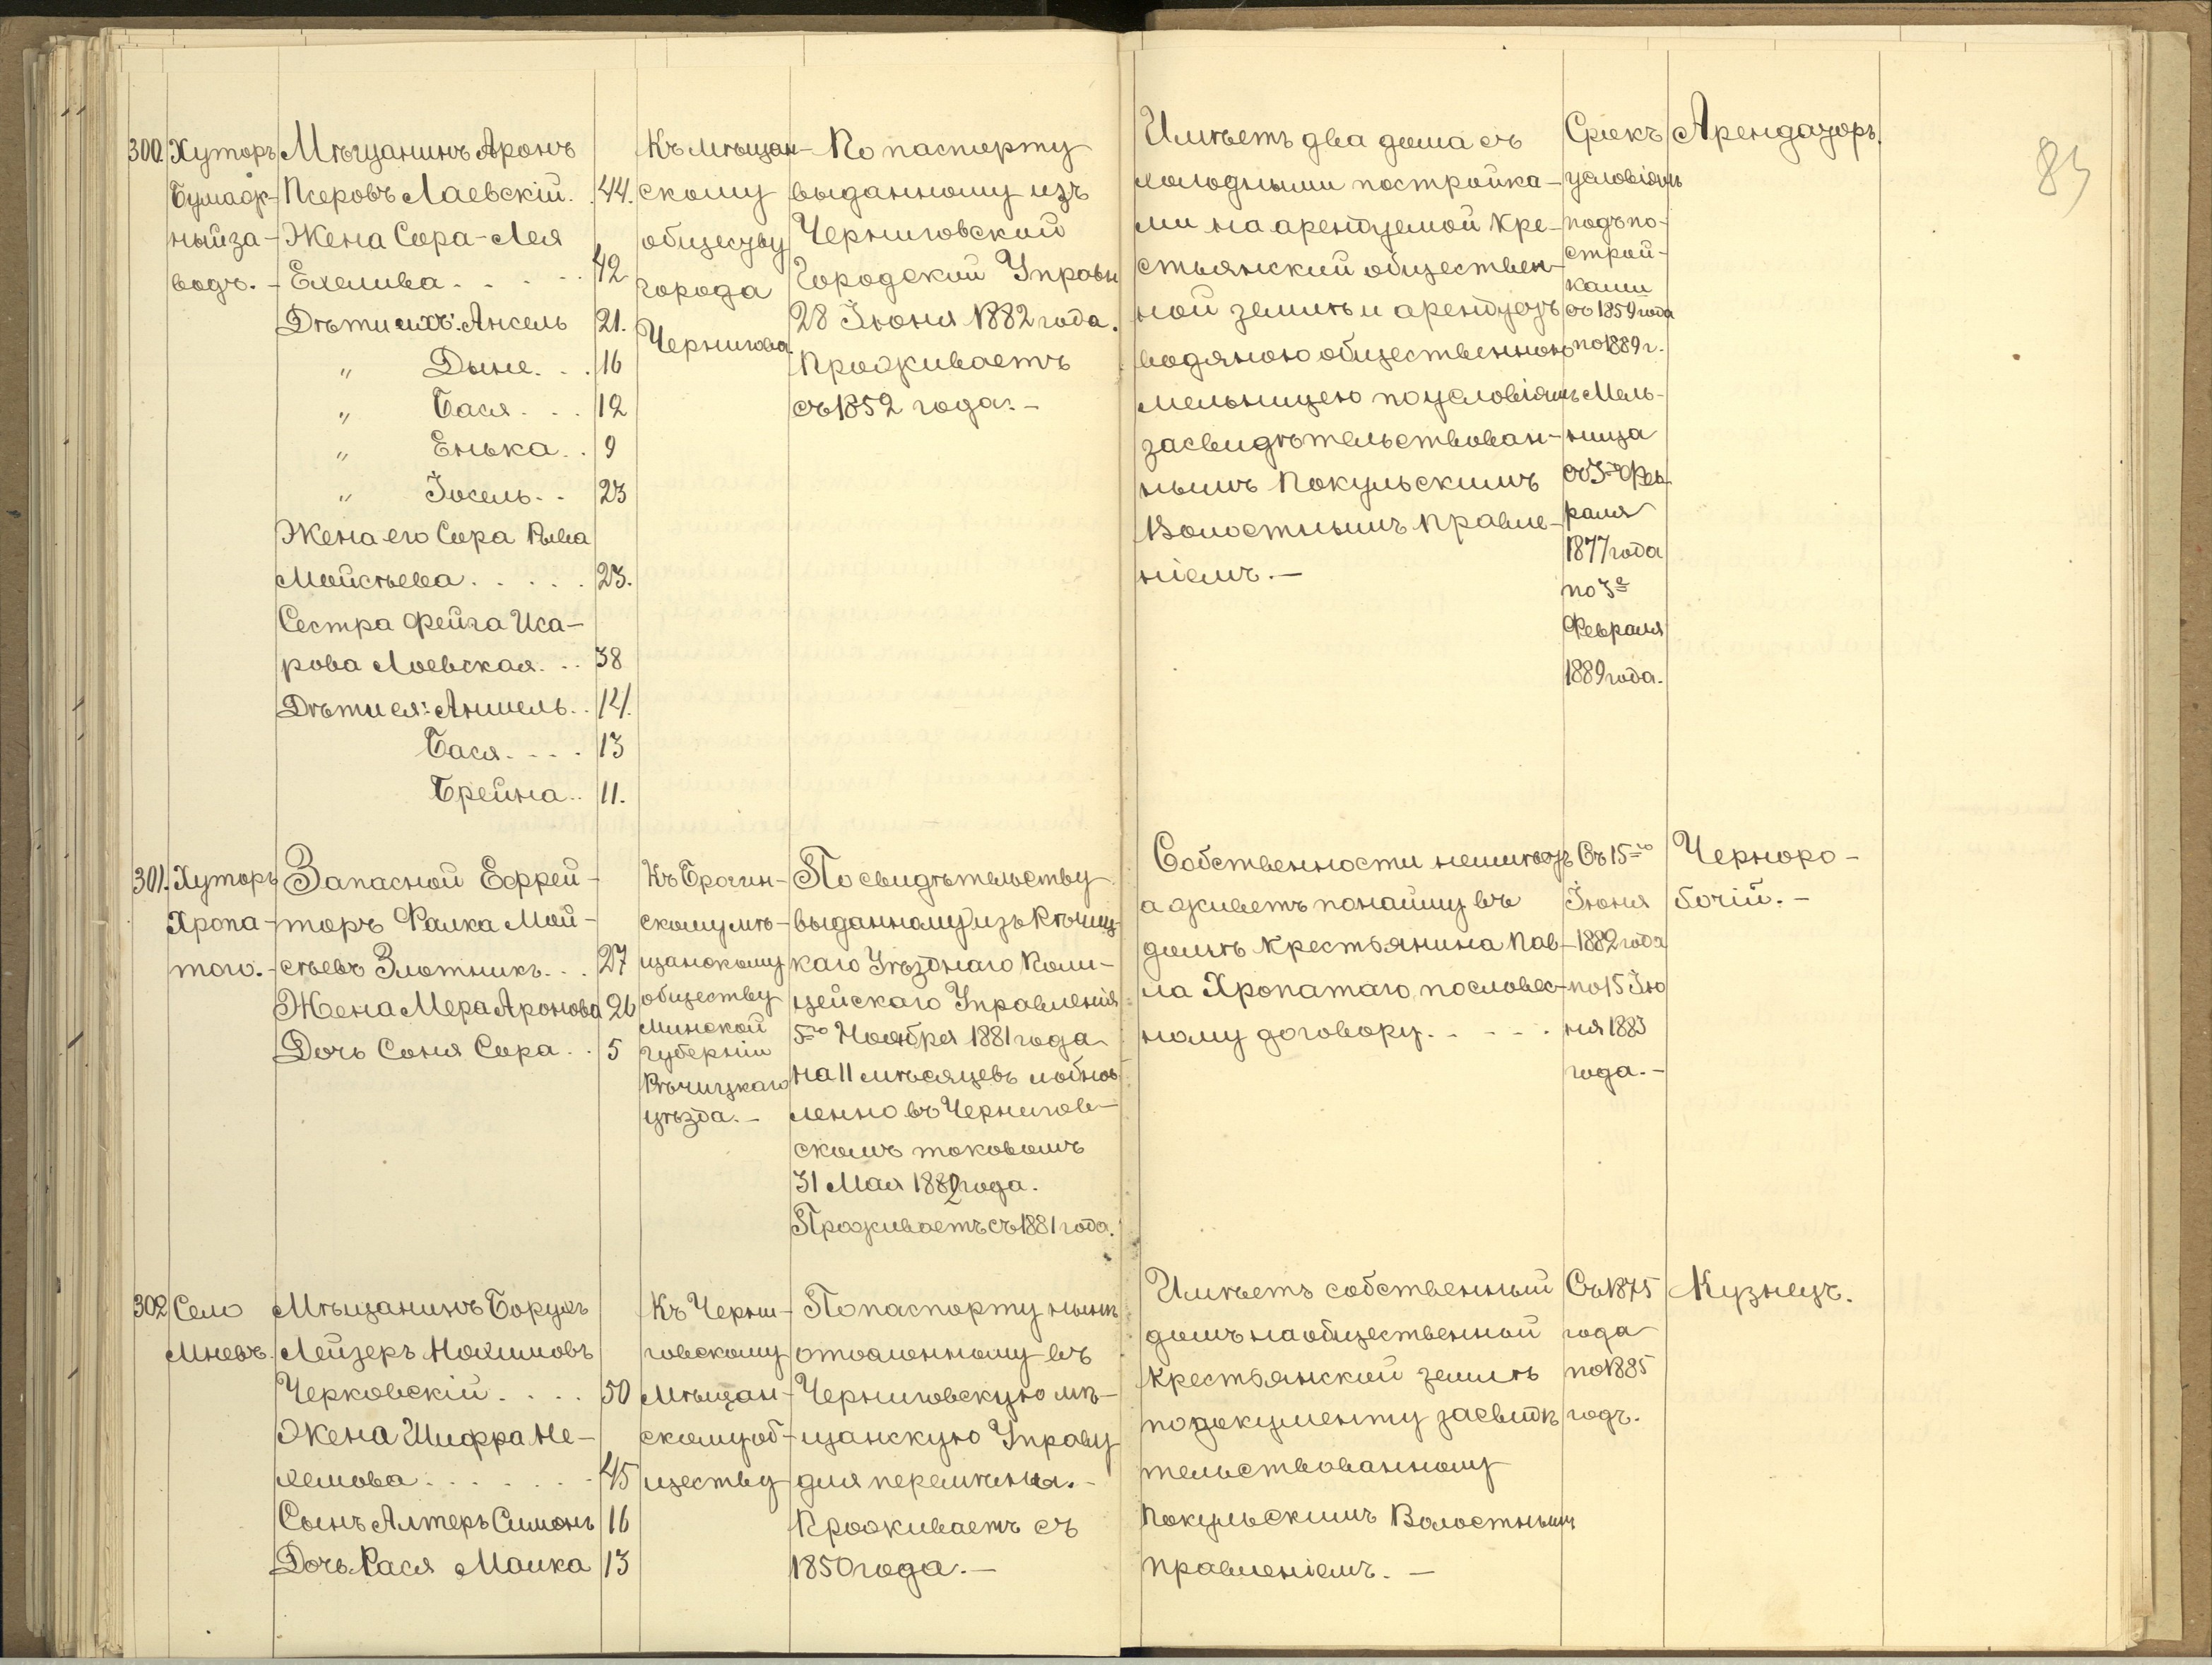 83
300. Хуторъ
Бумаж-
ный за-
водъ. -
Мѣщанинъ Аронъ
Псеровъ Лаевскій. . 44.
Жена Сора-Лея
Ехелива. . . . . 42
Дѣти ихъ: Ансель 21.
" Дыне. . . 16
" Бася. . . 12
" Енька. . 9
" Іосель. . 23
Жена его Сора Рыва
Мойсѣева. . . . . 23.
Сестра Фейга Иса-
рова Лоевская. . . 38
Дѣти ея: Аншель. . 14.
Бася. . . . 13
Брейна. . 11.
Къ мѣщан-
скому
обществу
города
Чернигова.
По паспорту
выданному изъ
Черниговской
Городской Управы
28 Іюня 1882 года.
Проживаетъ
съ 1852 года. -
Имѣетъ два дома съ
холодными постройка-
ми на арендуемой кре-
стьянской обществен-
ной землѣ и арендуетъ
водяною общественною
мельницею по условіямъ
засвидѣтельствован-
нымъ Покульскимъ
Волостнымъ правле-
ніемъ. -
Срокъ
условіямъ
подъ по-
строй-
ками
съ 1859 года
по 1889 г.
Мель-
ница
съ 3го Фев-
раля
1877 года
по 3е
Февраля
1889 года.
Арендаторъ.
301. Хуторъ
Хропа-
того. -
Запасной Ефрей-
торъ Фалка Мой-
сѣевъ Злотникъ. . . 27
Жена Мера Аронова 26
Дочь Соня Сора. . 5
Къ Брагин-
скому мѣ-
щанскому
обществу
Минской
губерніи
Рѣчицкаго
уѣзда. -
По свидѣтельству
выданному изъ Рѣчиц-
каго Уѣзднаго Поли-
цейскаго Управленія
5го Ноября 1881 года
на 11 мѣсяцевъ иобнов
ленно въ Чернигов-
скомъ таковомъ
31 Мая 1882 года.
Проживаетъ съ 1881 года.
Собственности неимѣетъ
а живетъ по найму въ
домѣ крестьянина Пав-
ла Хропатаго, по словес-
ному договору. . . . .
Съ 15го
Іюня
1882 года
по 15 Ію
ня 1883
года. -
Черноро-
бочій. -
302 Село
Мневъ.
Мѣщанинъ Борухъ
Лейзеръ Нохимовъ
Черковскій. . . . 50
Жена Шифра Не-
хемова. . . . . . 45
Сынъ Алтеръ Симонъ 16
Дочь Рася Малка 13
Къ Черни-
говскому
Мѣщан-
скому об-
ществу
По паспорту нынѣ
отосланному въ
Черниговскую мѣ-
щанскую Управу
для перемѣны. -
Проживаетъ съ
1850 года. -
Имѣетъ собственный
домъ на общественной
крестьянской землѣ
по документу засвидѣ
тельствованному
Покульскимъ Волостнымъ
правленіемъ. -
Съ 1875
года
по 1885
годъ.
Кузнецъ.